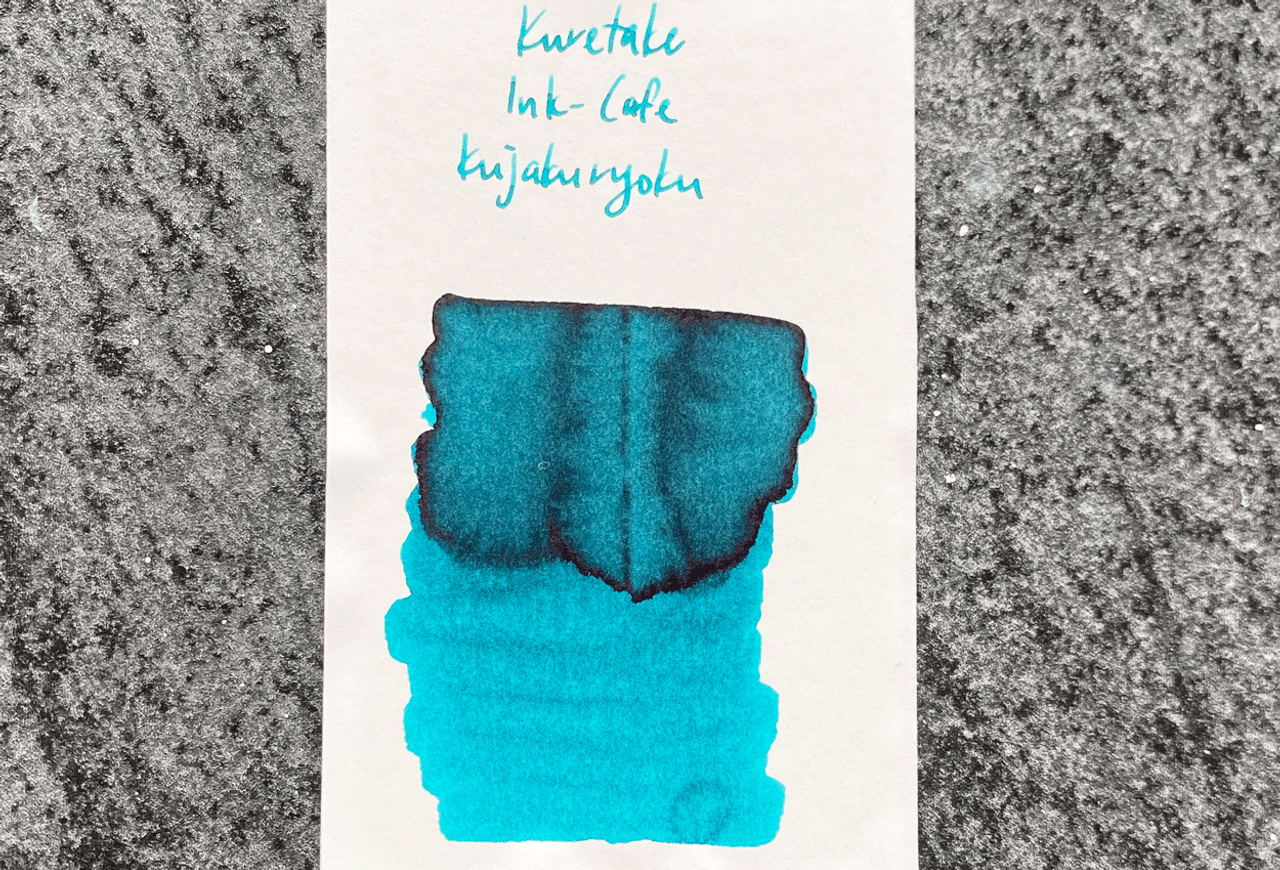 Kuretake
Ink-Cafe
Kujakuryoku